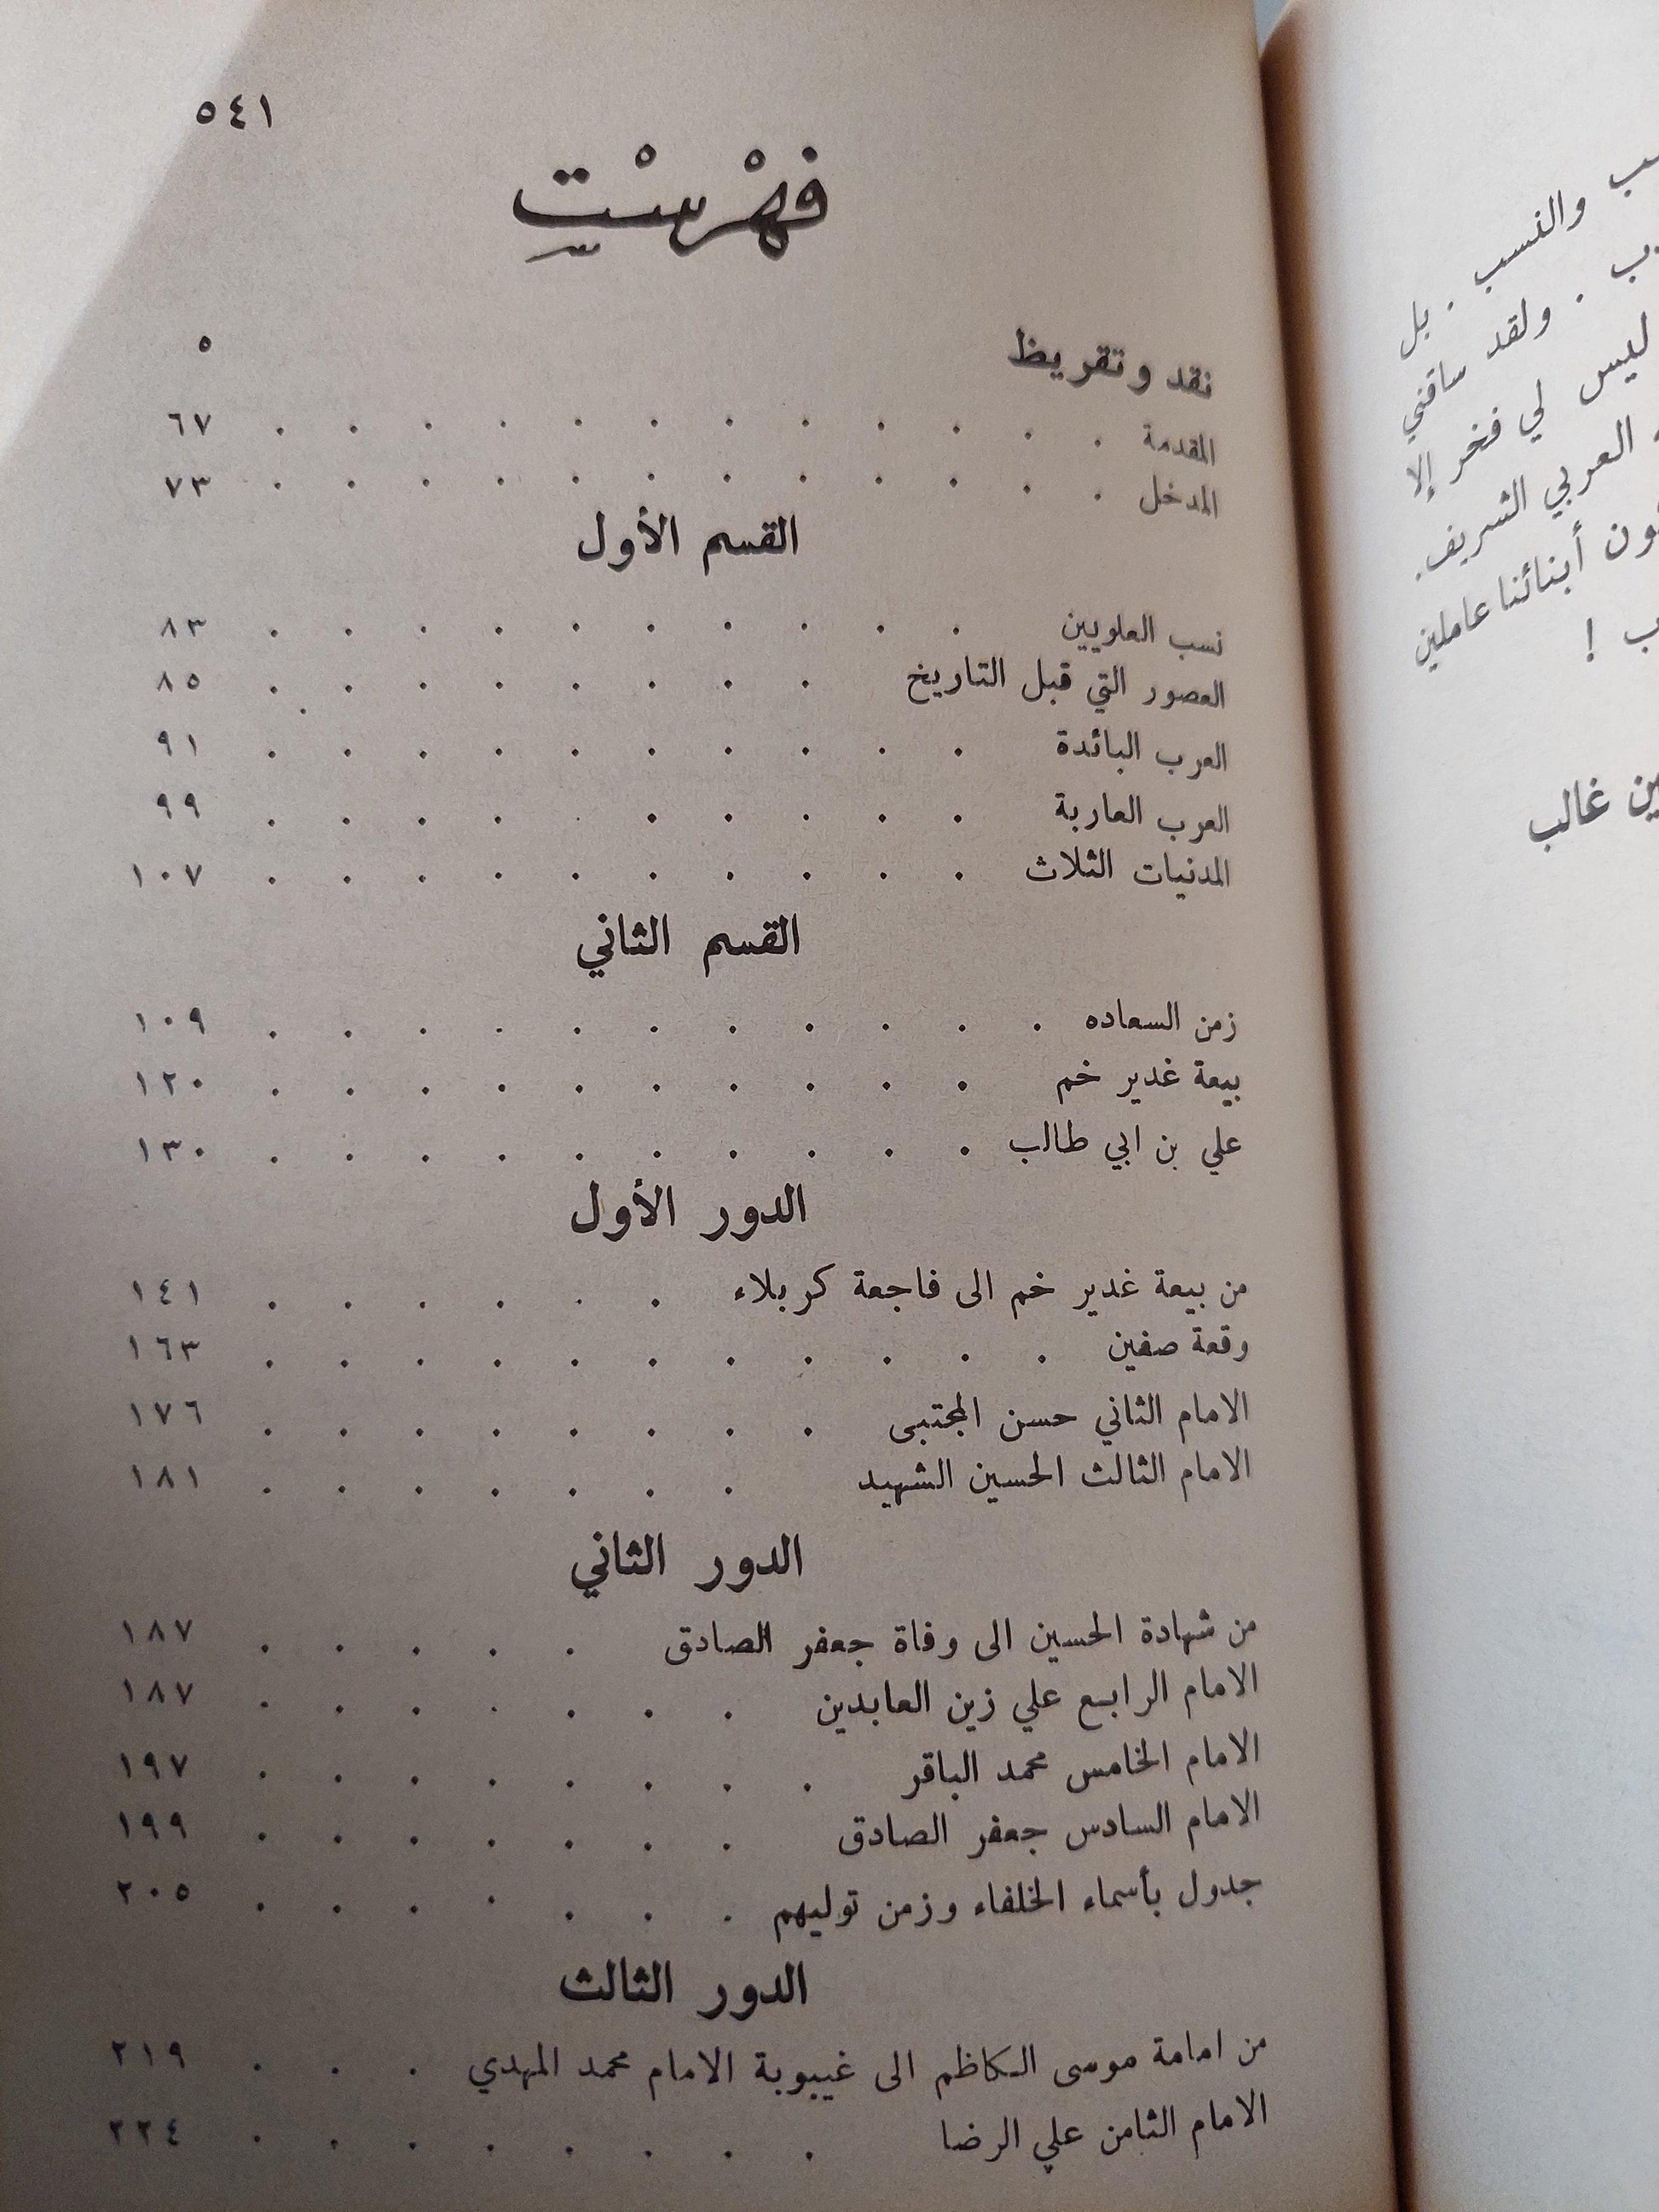 سب والنسب . بل
. ولقد ساقني
ليس لي فخر إلا
العربي الشريف.
أبنائنا عاملين
ب !
غالب
٥٤١
فهرست
نقد وتقريظ ٥
المقدمة . . . . . . . . . . . . ٦٧
المدخل . . . . . . . . . . . . ٧٣
القسم الأول
نسب العلويين . . . . . . . . . . ٨٣
العصور التي قبل التاريخ . . . . . . . . ٨٥
العرب البائدة . . . . . . . . . . ٩١
العرب العاربة . . . . . . . . . . ٩٩
المدنيات الثلاث . . . . . . . . . . ١٠٧
القسم الثاني
زمن السعاده . . . . . . . . . . . ١٠٩
بيعة غدير خم . . . . . . . . . . ١٢٠
علي بن ابي طالب . . . . . . . . . . ١٣٠
الدور الأول
من بيعة غدير خم الى فاجعة كربلاء . . . . . . ١٤١
وقعة صفين . . . . . . . . . . . ١٦٣
الامام الثاني حسن المجتبى . . . . . . . . ١٧٦
الامام الثالث الحسين الشهيد . . . . . . . ١٨١
الدور الثاني
من شهادة الحسين الى وفاة جعفر الصادق . . . . . ١٨٧
الامام الرابع علي زين العابدين . . . . . . . ١٨٧
الامام الخامس محمد الباقر . . . . . . . . ١٩٧
الامام السادس جعفر الصادق . . . . . . . ١٩٩
جدول بأسماء الخلفاء وزمن توليهم . . . . . . . ٢٠٥
الدور الثالث
من امامة موسى الكاظم الى غيبوبة الامام محمد المهدي . . . ٢١٩
الامام الثامن علي الرضا . . . . . . . . ٢٢٤